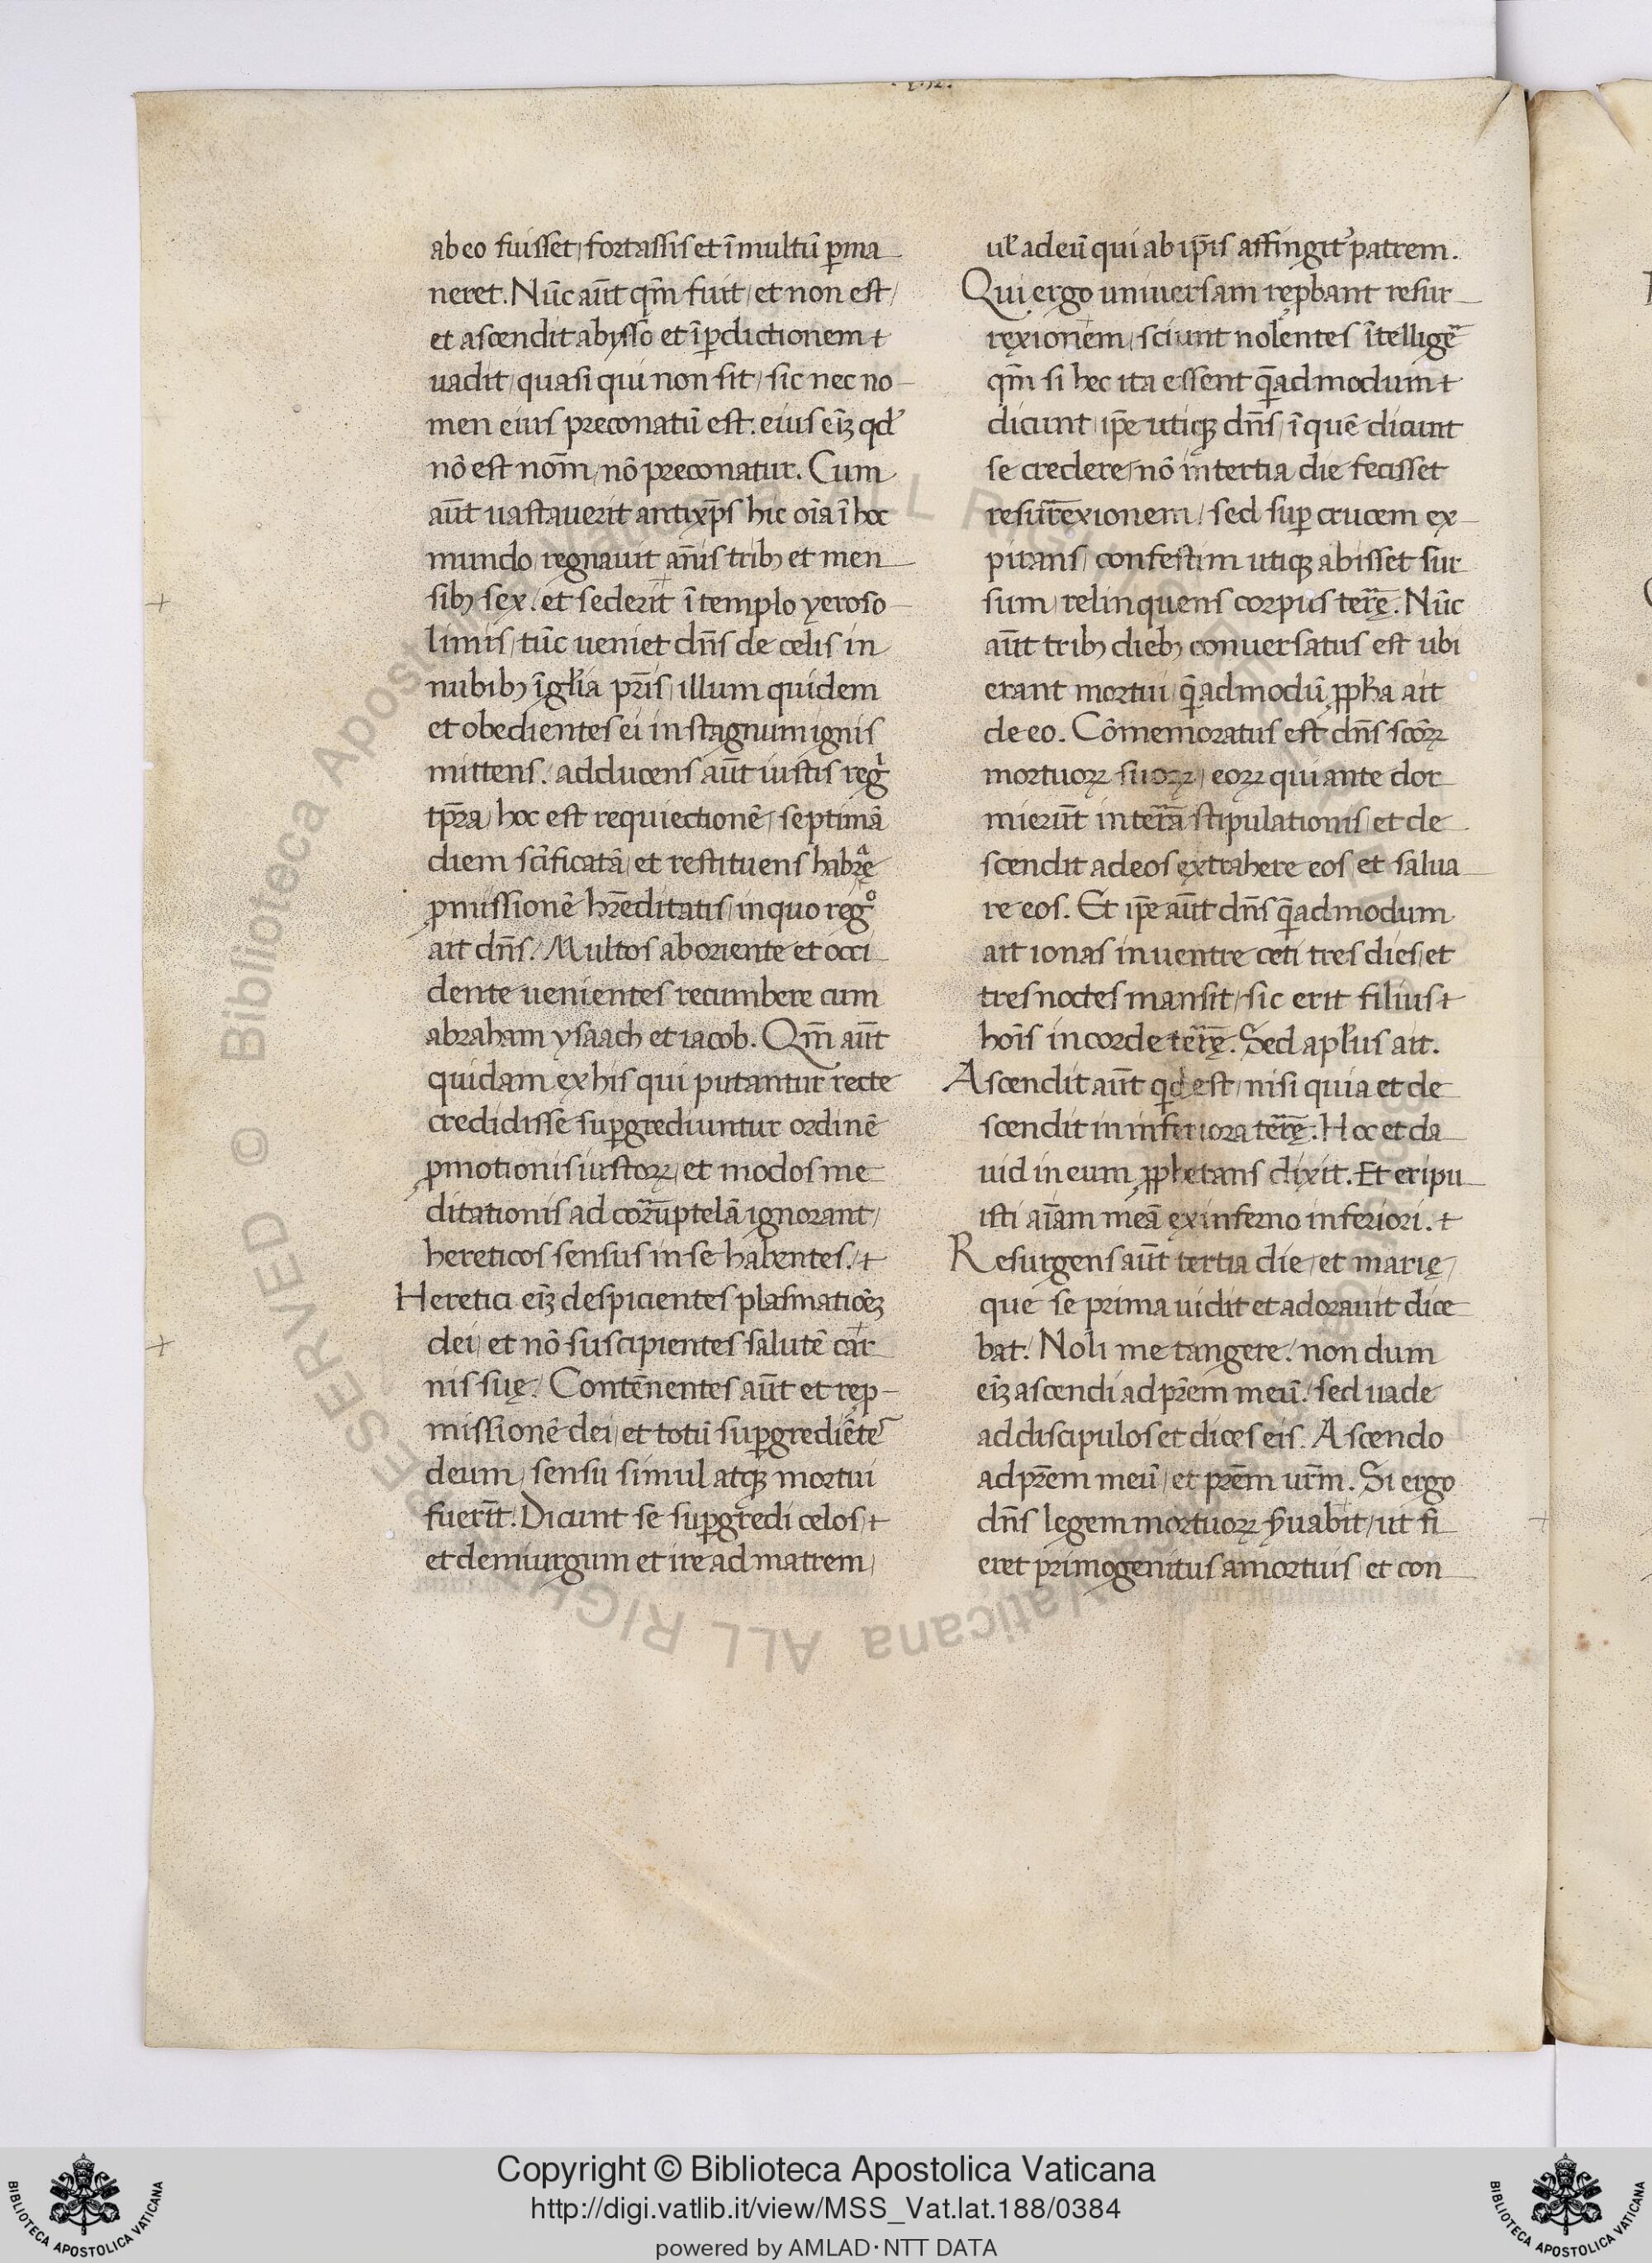 ab eo fuisset, fortassis et ĩ multũ ꝑma
neret. Nũc aũt qm̃ fuit, et non est,
et ascendit abysso et ĩ ꝑdictionem
uadit, quasi qui non sit, sic nec no-
men eius preconatũ est. eius eĩȝ qđ
nõ est nom̃, nõ preconatur. Cum
aũt uastauerit antixp̃s hic oĩa ĩ hoc
mundo, regnauit añis tribꝫ et men
sibꝫ sex, et sederit ĩ templo yeroso
limis, tũc ueniet dñs de celis in
nubibꝫ ĩ gl̃ia pr̃is, illum quidem
et obedientes ei in stagnum ignis
mittens. adducens aũt iustis regⁱ
tp̃ra, hoc est requiectionẽ, septimã
diem scĩficatã, et restituens habrᵃę
ꝓmissionẽ hr̃editatis, in quo regº
ait dñs. Multos ab oriente et occi
dente uenientes recumbere cum
abraham ysaach et iacob. Qm̃ aũt
quidam ex his qui putantur recte
credidisse suꝑgrediuntur ordinẽ
ꝓmotionis iustoꝝ, et modos me
ditationis ad cor̃uptelã ignorant,
hereticos sensus in se habentes.
Heretici eĩȝ despicientes plasmatiõeȝ
dei, et nõ suscipientes salutẽ car
nis suę. Contẽnentes aũt et reꝓ-
missionẽ dei, et totũ suꝑgrediẽteˢ
deum, sensu simul atqꝫ mortui
fuerĩt. Dicunt se suꝑgredi celos,
et demiurgum et ire ad matrem,
uel̃ ad eũ qui ab ip̃is affingit᷑ patrem.
Qui ergo uniuersam reꝓbant resur
rexionem, sciunt nolentes ĩtelligẽ
qm̃ si hec ita essent qͣ̃admodum
dicunt, ip̃e utiqꝫ dñs, ĩ quẽ dicunt
se credere, nõ in tertia die fecisset
resur̃exionem, sed suꝑ crucem ex
pirans, confestim utiqꝫ abisset sur
sum, relinquens corpus ter̃ę. Nũc
aũt tribꝫ diebꝫ conuersatus est ubi
erant mortui, qͣ̃admodũ ꝓpħa ait
de eo. Cõmemoratus est dñs scõꝝ
mortuoꝝ suoꝝ, eoꝝ qui ante dor
mierũt in ter̃ã stipulationis, et de
scendit ad eos extrahere eos, et salua
re eos. Et ip̃e aũt dñs qͣ̃admodum
ait ionas in uentre ceti tres dies, et
tres noctes mansit, sic erit filius
hoĩs in corde ter̃ę. Sed apl̃us ait.
Ascendit aũt qͥd est, nisi quia et de
scendit in inferiora ter̃ę. Hoc et da
uid in eum ꝓphetans dixit. Et eripu
isti aĩam meã ex inferno inferiori.
Resurgens aũt tertia die, et marię,
que se prima uidit et adorauit dice
bat. Noli me tangere. non dum
eĩȝ ascendi ad pr̃em meũ. sed uade
ad discipulos et dices eis. Ascendo
ad pr̃em meũ, et pr̃em ur̃m. Si ergo
dñs legem mortuoꝝ ẙuabit, ut fi
eret primogenitus a mortuis, et con
Copyright © Biblioteca Apostolica Vaticana
http://digi.vatlib.it/view/MSS_Vat.lat.188/0384
powered by AMLAD·NTT DATA
BIBLIOTECA APOSTOLICA VATICANA
BIBLIOTECA APOSTOLICA VATICANA